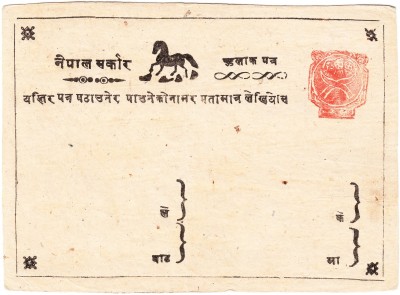 नैपाल सर्कार
हुलाक पत्र
यस्तिर पत्र पठाउनेर पाउनेको नामर पतामात्र लेखियोस
ल
क
बाट
मा